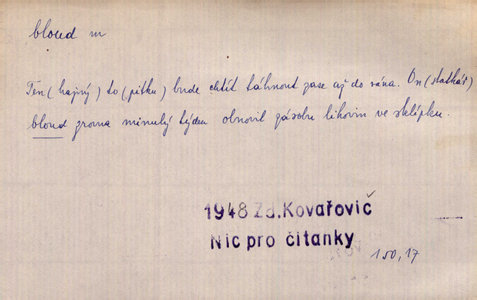 bloud m
Ten (hajný) to (pitku) bude chtít táhnout zase až do rána. On (statkář)
bloud zrovna minulý týden obnovil zásobu lihovin ve sklípku.
1948 Zd. Kovařovič
Nic pro čítanky
150,17